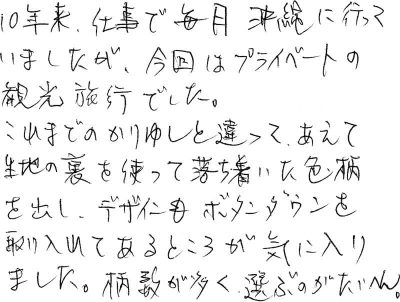 10年来、仕事で毎月 沖縄に行って
いましたが、今回はプライベートの
観光旅行でした。
これまでのかりゆしと違って、あえて
生地の裏を使って落ち着いた色柄
を出し、デザインも ボタンダウンを
取り入れてあるところが気に入り
ました。柄数が多く、選ぶのがたいへん。